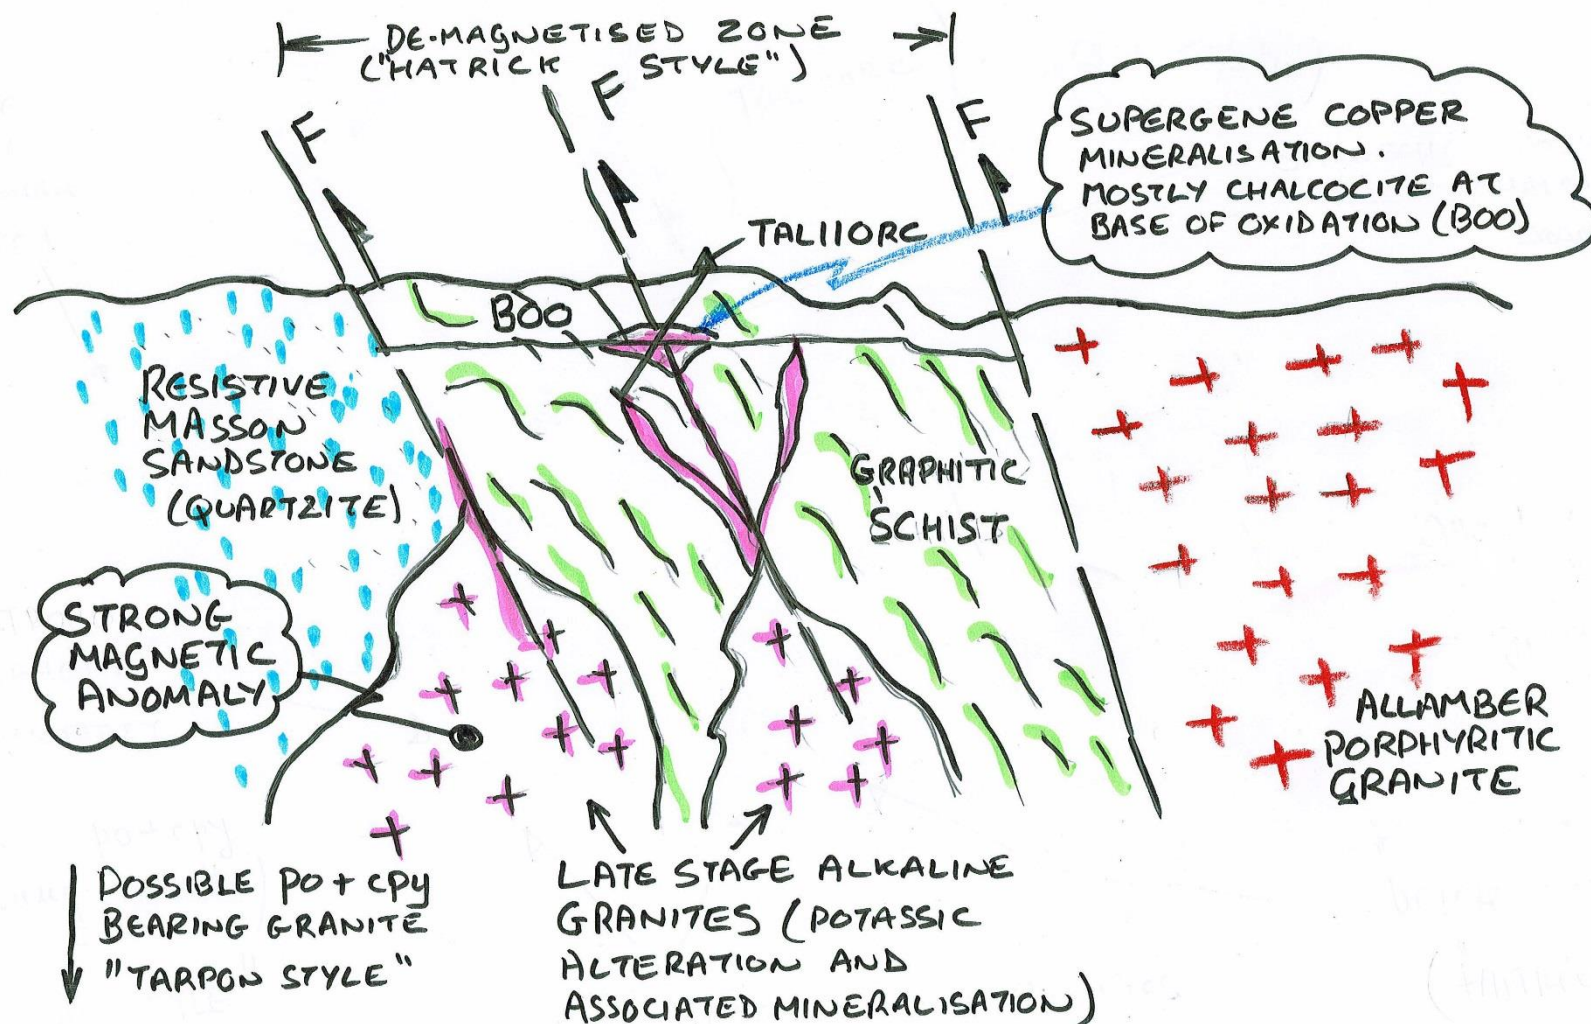 DE-MAGNETISED ZONE
("HATRICK STYLE")
F
F
F
SUPERGENE COPPER
MINERALISATION.
MOSTLY CHALCOCITE AT
BASE OF OXIDATION (BOO)
TAL110RC
BOO
RESISTIVE
MASSON
SANDSTONE
(QUARTZITE)
GRAPHITIC
SCHIST
STRONG
MAGNETIC
ANOMALY
ALLAMBER
PORPHYRITIC
GRANITE
POSSIBLE po + cpy
BEARING GRANITE
"TARPON STYLE"
LATE STAGE ALKALINE
GRANITES (POTASSIC
ALTERATION AND
ASSOCIATED MINERALISATION)